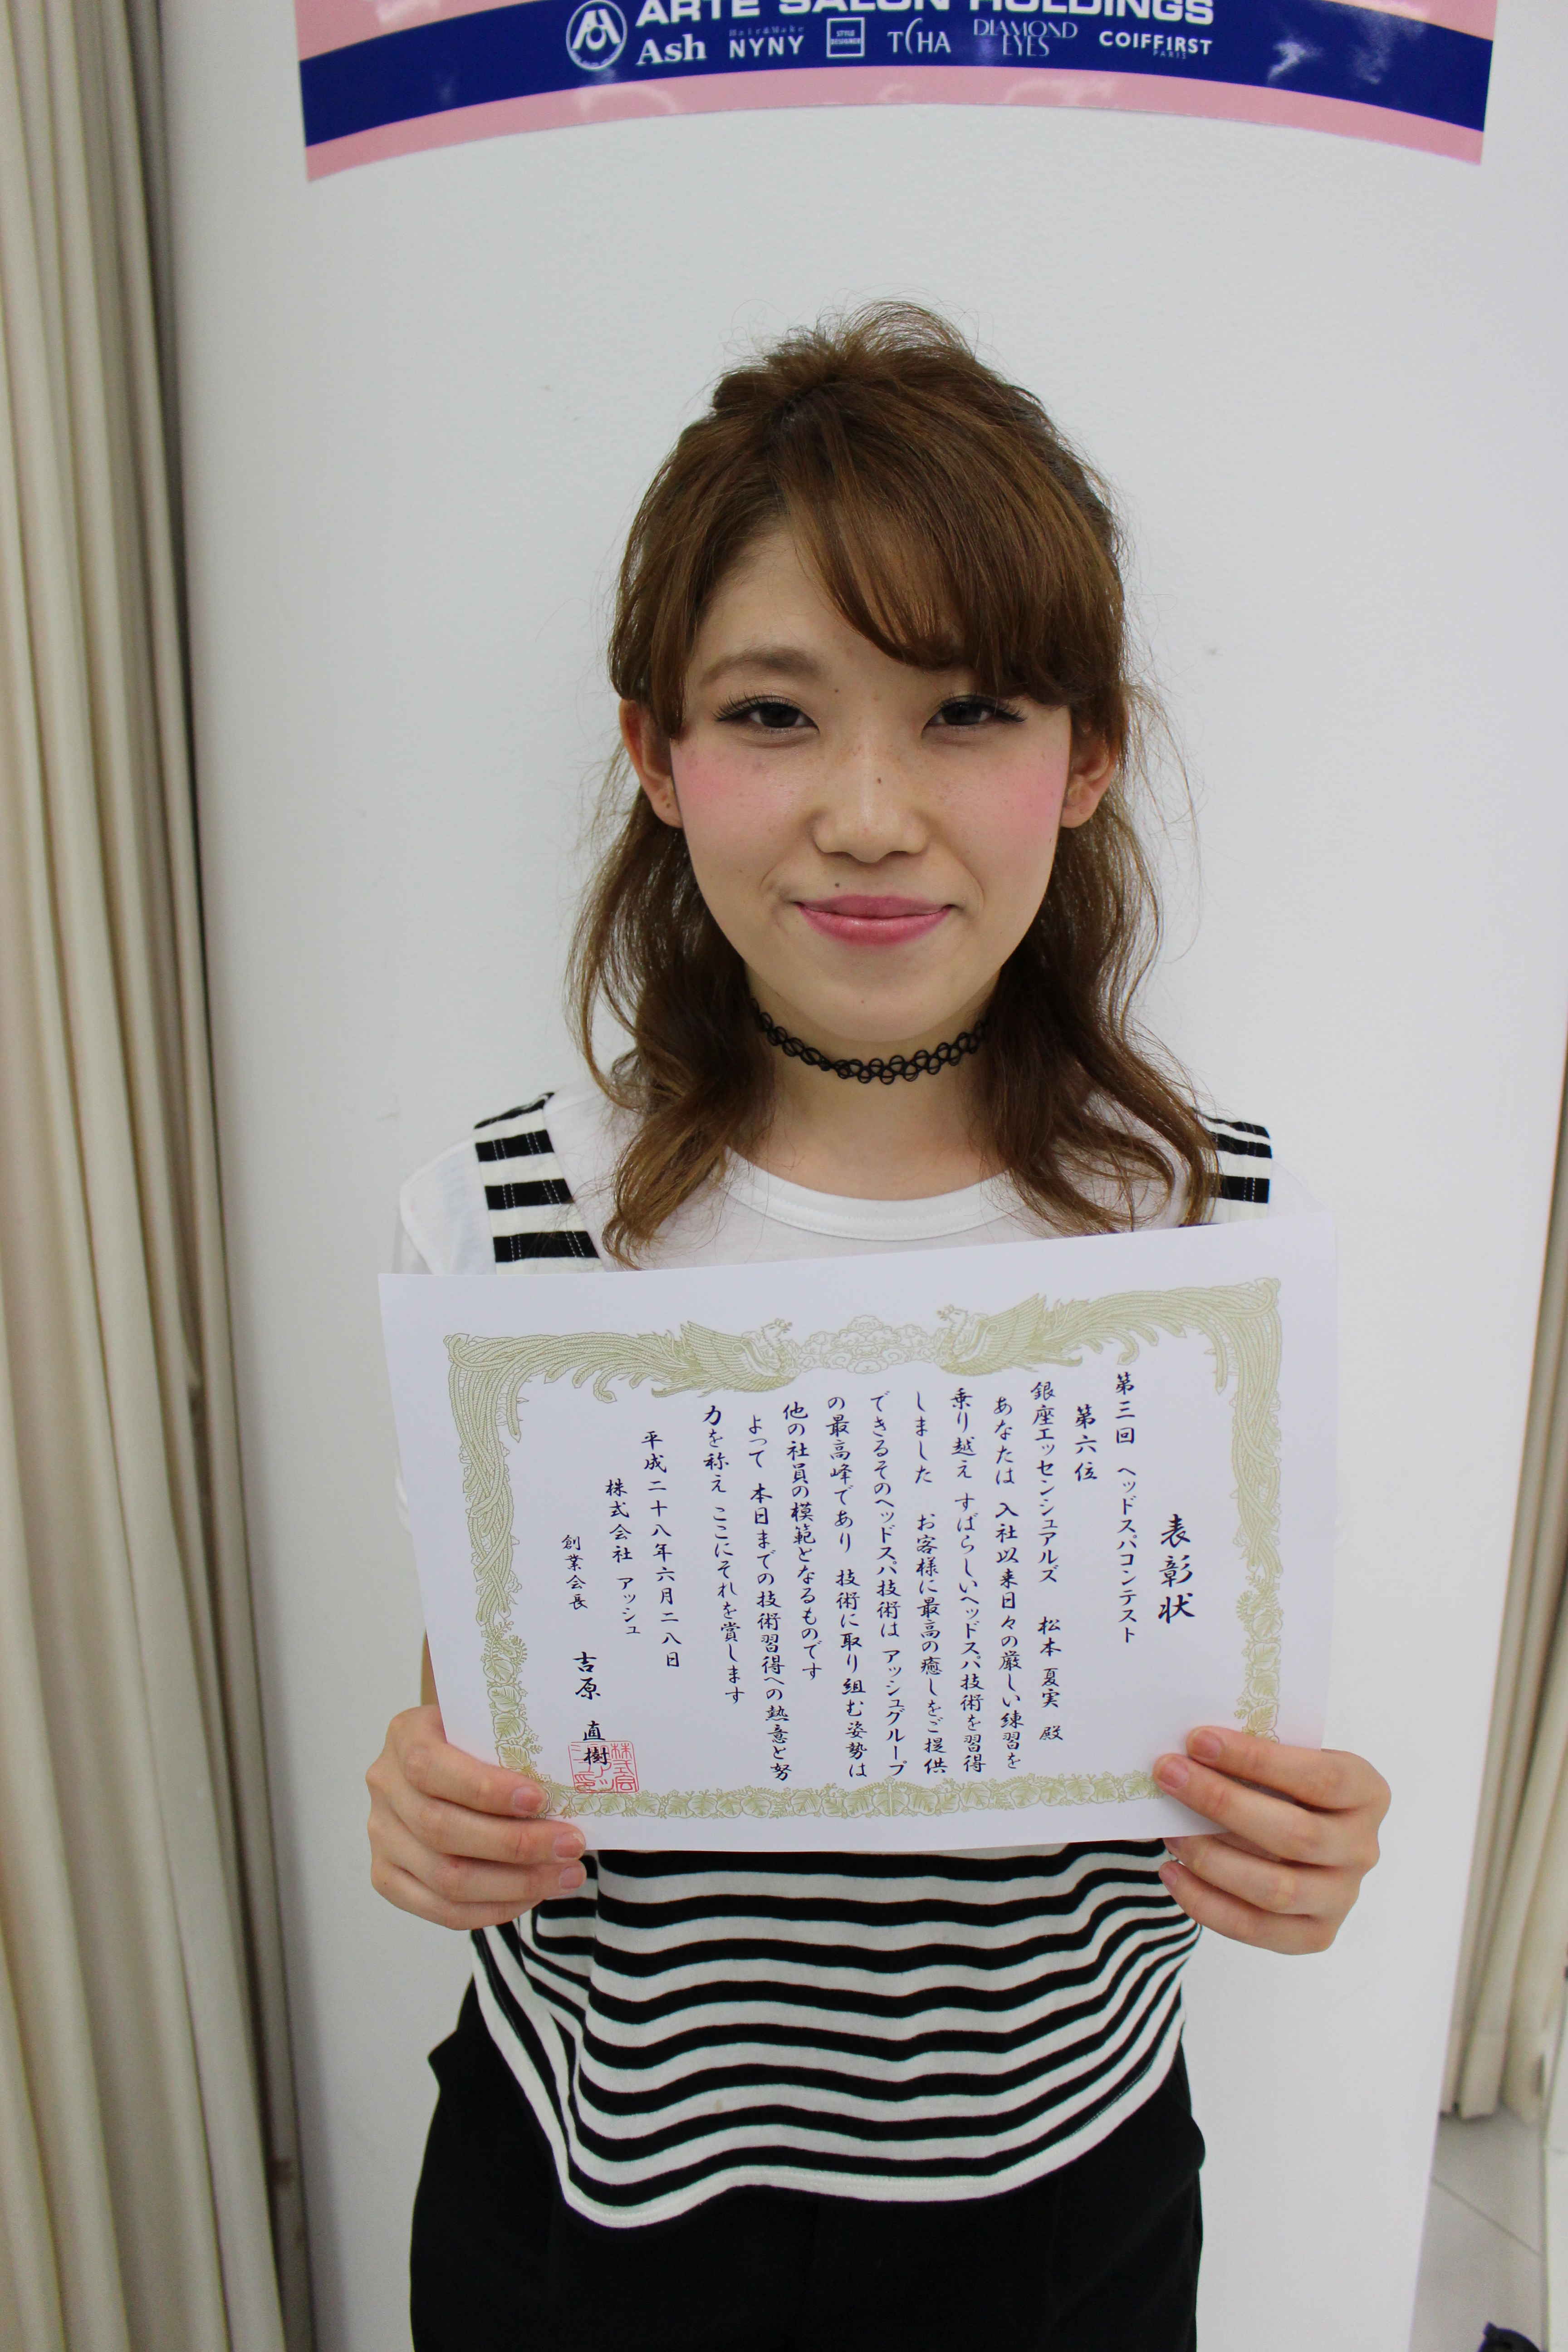 ARTE SALON HOLDINGS
Ash
Hair&Make
NYNY
STYLE DESIGNER
TCHA
DIAMOND EYES
COIFF1RST
PARIS
表彰状
第三回 ヘッドスパコンテスト
第六位
銀座エッセンシュアルズ 松本 夏実 殿
あなたは 入社以来日々の厳しい練習を
乗り越え すばらしいヘッドスパ技術を習得
しました お客様に最高の癒しをご提供
できるそのヘッドスパ技術は アッシュグループ
の最高峰であり 技術に取り組む姿勢は
他の社員の模範となるものです
よって 本日までの技術習得への熱意と努
力を称え ここにそれを賞します
平成二十八年六月二八日
株式会社 アッシュ
創業会長 吉原 直樹